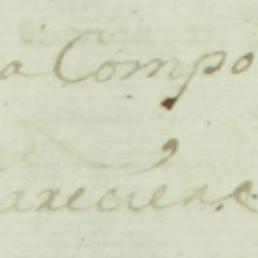 a Compo
arecien